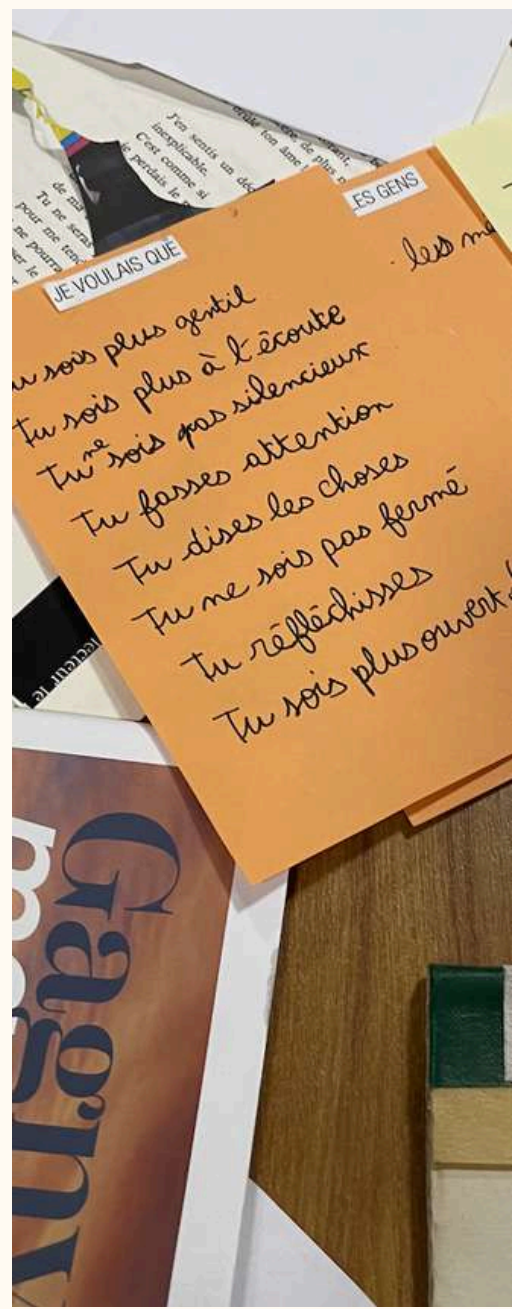 J'en sentis un
inexplicable.
C'est comme si
je perdais le
de ma
Tu ne seras
pour me
ne pourra
LES GENS
les
JE VOULAIS QUE
Tu sois plus gentil
Tu sois plus à l'écoute
Tu ne sois pas silencieux
Tu fasses attention
Tu dises les choses
Tu ne sois pas fermé
Tu réfléchisses
Tu sois plus ouvert
lecteur le
Gagny